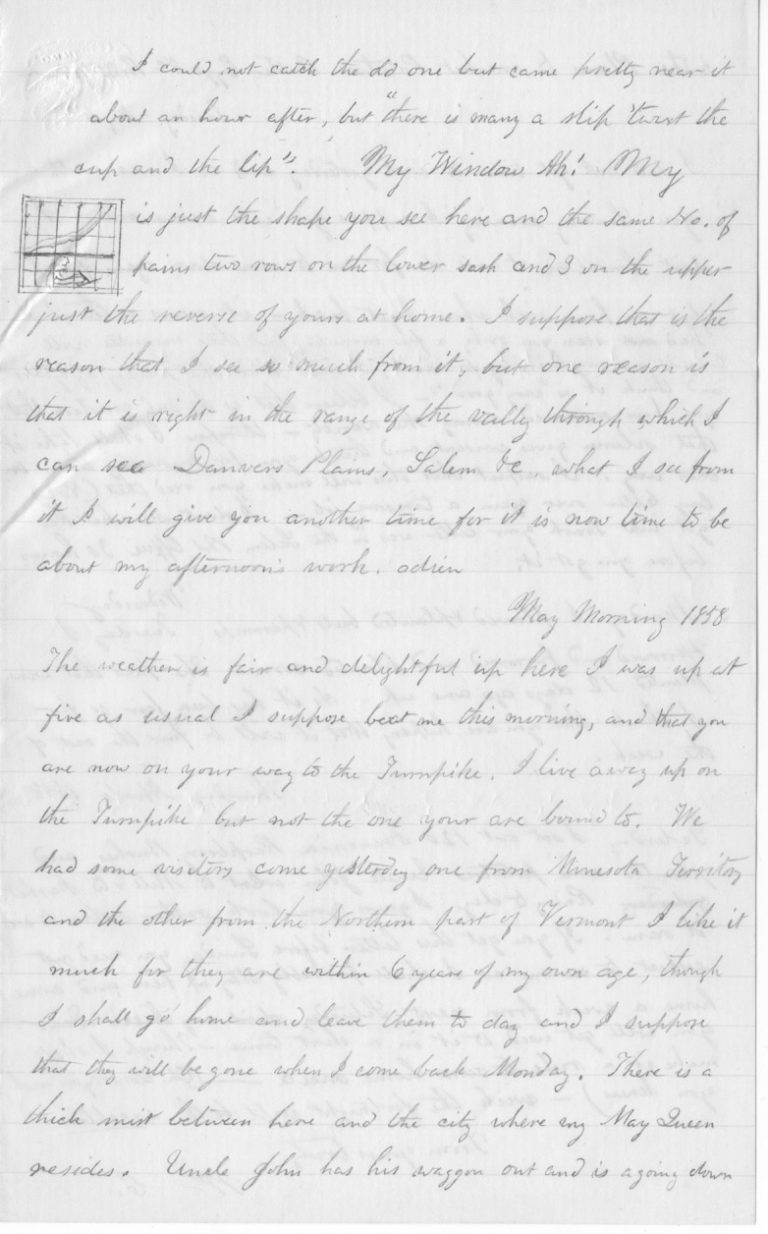 I could not catch the old one but came pretty near it
about an hour after, but "there is many a slip 'twixt the
cup and the lip". My Window Ah! My
is just the shape you see here and the same No. of
pains two rows on the lower sash and 3 on the upper
just the reverse of yours at home. I suppose that is the
reason that I see so much from it, but one reason is
that it is right in the range of the vally through which I
can see Danvers Plains, Salem &c. what I see from
it I will give you another time for it is now time to be
about my afternoon's work. adieu
May Morning 1858
The weather is fair and delightful up here I was up at
five as usual I suppose beat me this morning, and that you
are now on your way to the Turnpike. I live away up on
the Turnpike but not the one your are bound to. We
had some visitors come yesterday one from Minesota Territory
and the other from the Northern part of Vermont I like it
much for they are within 6 years of my own age, though
I shall go home and leave them to day and I suppose
that they will be gone when I come back Monday. There is a
thick mist between here and the city where my May Queen
resides. Uncle John has his waggon out and is agoing down